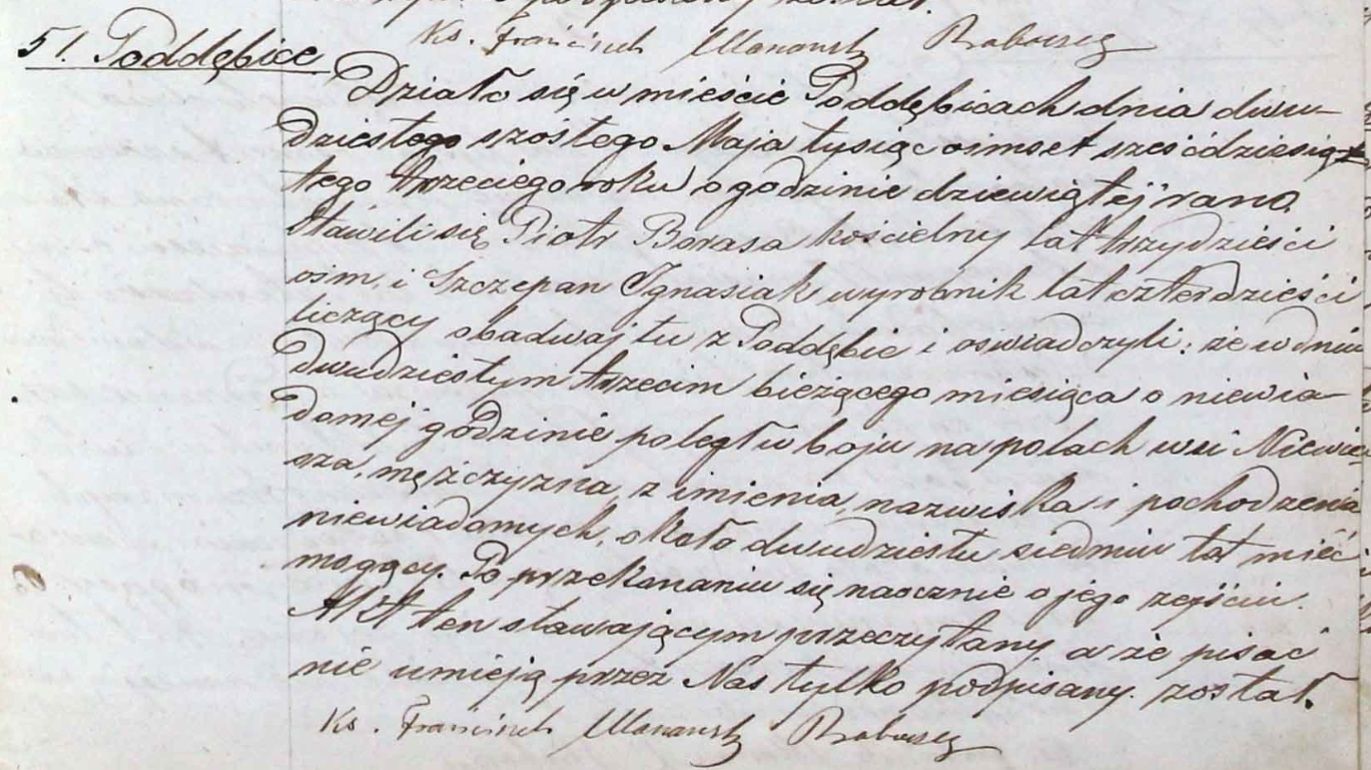 Ks. Franciszek
51. Poddębice
Działo się w mieście Poddębicach dnia dwu-
dziestego szóstego Maja tysiąc ośmset sześćdziesią-
tego trzeciego roku o godzinie dziewiątej rano.
Stawili się Piotr Borasa kościelny lat trzydzieści
ośm, i Szczepan Ignasiak wyrobnik lat czterdzieści
liczący obadwaj tu z Poddębic i oswiadczyli: że w dniu
dwudziestym trzecim bieżącego miesiąca o niewia-
domej godzinie poległ w boju na polach wsi Niewie-
sza, mężczyzna, z imienia, nazwiska i pochodzenia
niewiadomych, około dwudziestu siedmiu lat mieć
mogący. Po przekonaniu się naocznie o jego zejściu.
Akt ten stawającym przeczytany, a że pisać
nie umieją przez Nas tylko podpisany został.
Ks. Franciszek